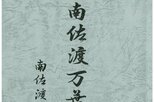 南佐渡万葉
南佐渡